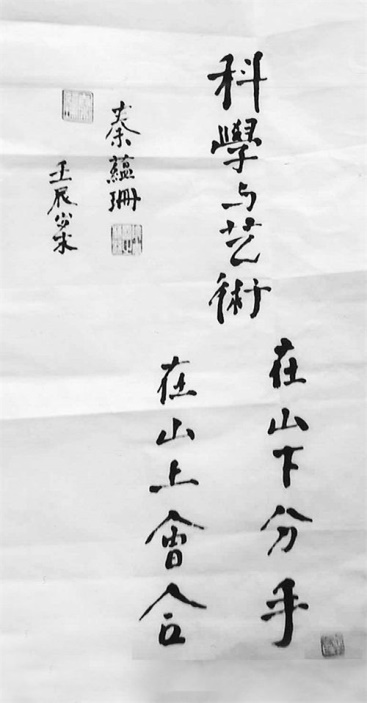 科學与艺術
在山下分手
在山上會合
秦蕴珊
壬辰